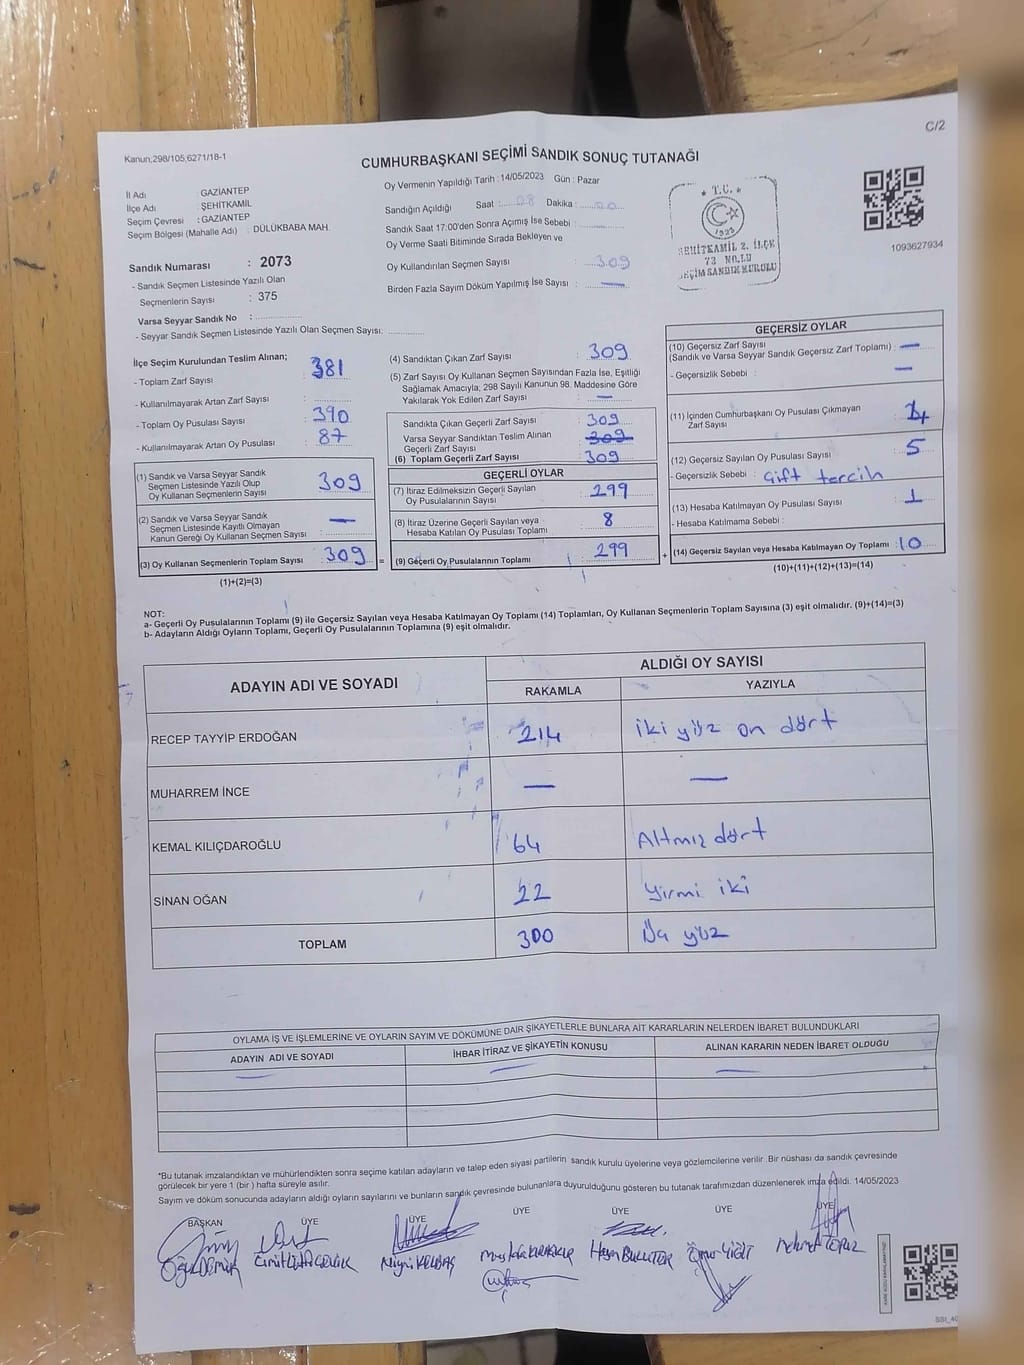 C/2
Kanun;298/105,6271/18-1
CUMHURBAŞKANI SEÇİMİ SANDIK SONUÇ TUTANAĞI
İl Adı GAZİANTEP
İlçe Adı ŞEHİTKAMİL
Seçim Çevresi : GAZİANTEP
Seçim Bölgesi (Mahalle Adı) : DÜLÜKBABA MAH.
Sandık Numarası : 2073
- Sandık Seçmen Listesinde Yazılı Olan
Seçmenlerin Sayısı : 375
Varsa Seyyar Sandık No :
- Seyyar Sandık Seçmen Listesinde Yazılı Olan Seçmen Sayısı:
Oy Vermenin Yapıldığı Tarih : 14/05/2023 Gün : Pazar
Sandığın Açıldığı Saat : 08 Dakika : 00
Sandık Saat 17:00'den Sonra Açımış İse Sebebi :
Oy Verme Saati Bitiminde Sırada Bekleyen ve
Oy Kullandırılan Seçmen Sayısı : 309
Birden Fazla Sayım Döküm Yapılmış İse Sayısı : —
T.C.
1923
ŞEHİTKAMİL 2. İLÇE
73 NO.LU
SEÇİM SANDIK KURULU
1093627934
İlçe Seçim Kurulundan Teslim Alınan;
- Toplam Zarf Sayısı : 381
- Kullanılmayarak Artan Zarf Sayısı :
- Toplam Oy Pusulası Sayısı : 390
- Kullanılmayarak Artan Oy Pusulası : 87
(1) Sandık ve Varsa Seyyar Sandık
Seçmen Listesinde Yazılı Olup
Oy Kullanan Seçmenlerin Sayısı : 309
(2) Sandık ve Varsa Seyyar Sandık
Seçmen Listesinde Kayıtlı Olmayan
Kanun Gereği Oy Kullanan Seçmen Sayısı : —
(3) Oy Kullanan Seçmenlerin Toplam Sayısı : 309 =
(1)+(2)=(3)
(4) Sandıktan Çıkan Zarf Sayısı : 309
(5) Zarf Sayısı Oy Kullanan Seçmen Sayısından Fazla İse, Eşitliği
Sağlamak Amacıyla; 298 Sayılı Kanunun 98. Maddesine Göre
Yakılarak Yok Edilen Zarf Sayısı : —
Sandıkta Çıkan Geçerli Zarf Sayısı : 309
Varsa Seyyar Sandıktan Teslim Alınan
Geçerli Zarf Sayısı : 309
(6) Toplam Geçerli Zarf Sayısı : 309
GEÇERLİ OYLAR
(7) İtiraz Edilmeksizin Geçerli Sayılan
Oy Pusulalarının Sayısı : 299
(8) İtiraz Üzerine Geçerli Sayılan veya
Hesaba Katılan Oy Pusulası Toplamı : 8
(9) Geçerli Oy Pusulalarının Toplamı : 299 +
GEÇERSİZ OYLAR
(10) Geçersiz Zarf Sayısı
(Sandık ve Varsa Seyyar Sandık Geçersiz Zarf Toplamı) : —
- Geçersizlik Sebebi : —
(11) İçinden Cumhurbaşkanı Oy Pusulası Çıkmayan
Zarf Sayısı : 4
(12) Geçersiz Sayılan Oy Pusulası Sayısı : 5
- Geçersizlik Sebebi : Çift tercih
(13) Hesaba Katılmayan Oy Pusulası Sayısı : 1
- Hesaba Katılmama Sebebi :
(14) Geçersiz Sayılan veya Hesaba Katılmayan Oy Toplamı : 10
(10)+(11)+(12)+(13)=(14)
NOT:
a- Geçerli Oy Pusulalarının Toplamı (9) ile Geçersiz Sayılan veya Hesaba Katılmayan Oy Toplamı (14) Toplamları, Oy Kullanan Seçmenlerin Toplam Sayısına (3) eşit olmalıdır. (9)+(14)=(3)
b- Adayların Aldığı Oyların Toplamı, Geçerli Oy Pusulalarının Toplamına (9) eşit olmalıdır.
ADAYIN ADI VE SOYADI ALDIĞI OY SAYISI
RAKAMLA YAZIYLA
RECEP TAYYİP ERDOĞAN 214 iki yüz on dört
MUHARREM İNCE — —
KEMAL KILIÇDAROĞLU 64 Altmız dört
SİNAN OĞAN 22 yirmi iki
TOPLAM 300 Üç yüz
OYLAMA İŞ VE İŞLEMLERİNE VE OYLARIN SAYIM VE DÖKÜMÜNE DAİR ŞİKAYETLERLE BUNLARA AİT KARARLARIN NELERDEN İBARET BULUNDUKLARI
ADAYIN ADI VE SOYADI İHBAR İTİRAZ VE ŞİKAYETİN KONUSU ALINAN KARARIN NEDEN İBARET OLDUĞU
— — —
*Bu tutanak imzalandıktan ve mühürlendikten sonra seçime katılan adayların ve talep eden siyasi partilerin sandık kurulu üyelerine veya gözlemcilerine verilir. Bir nüshası da sandık çevresinde
görülecek bir yere 1 (bir) hafta süreyle asılır.
Sayım ve döküm sonucunda adayların aldığı oyların sayılarını ve bunların sandık çevresinde bulunanlara duyurulduğunu gösteren bu tutanak tarafımızdan düzenlenerek imza edildi. 14/05/2023
BAŞKAN ÜYE ÜYE ÜYE ÜYE ÜYE ÜYE
Ömer YİĞİT Mehmet TOPUZ